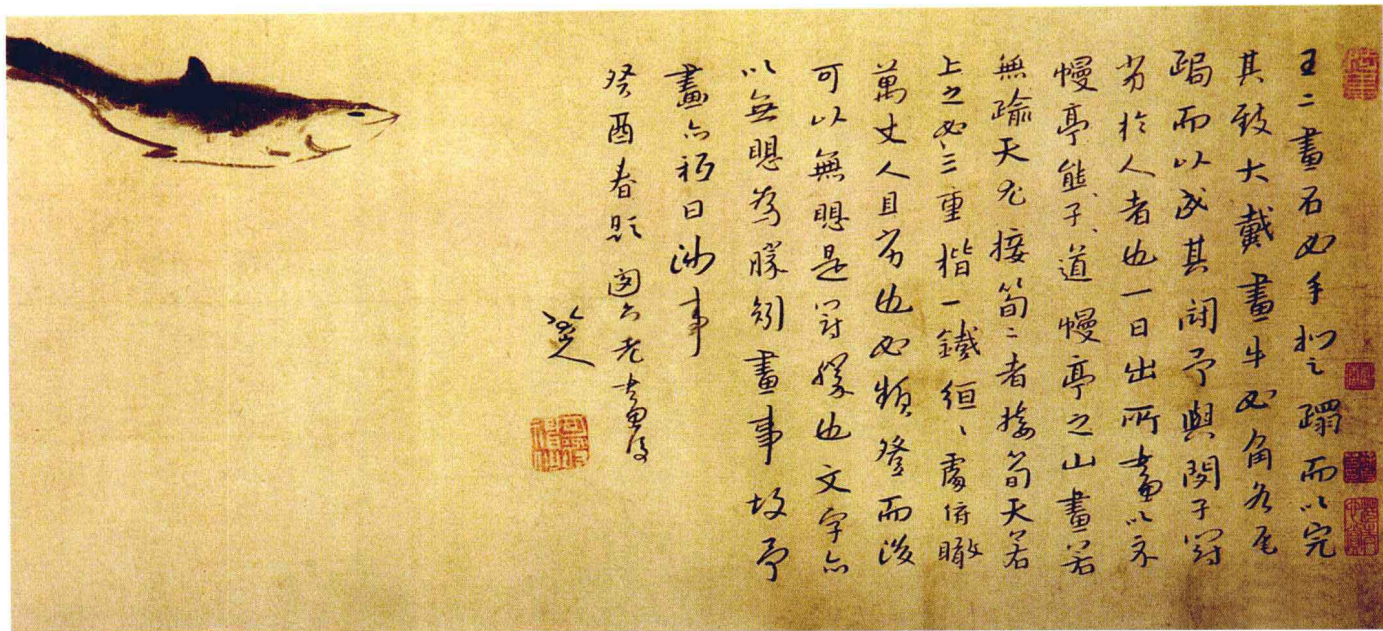 王二畫石必手捫之蹋而以完
其致大戴畫牛必角者尾
跼而以成其鬥予與閔子鬥
劣於人者也一日出所畫以示
幔亭熊子道幔亭之山畫若
無踰天光接筍二者接筍天若
上之必三重楷一鐵絙、處俯瞰
萬丈人目眴也必頻登而後
可以無瞑是鬥勝也文字亦
以無瞑為勝矧畫事故予
畫亦稱曰涉事
癸酉春題 老畫後
八大山人